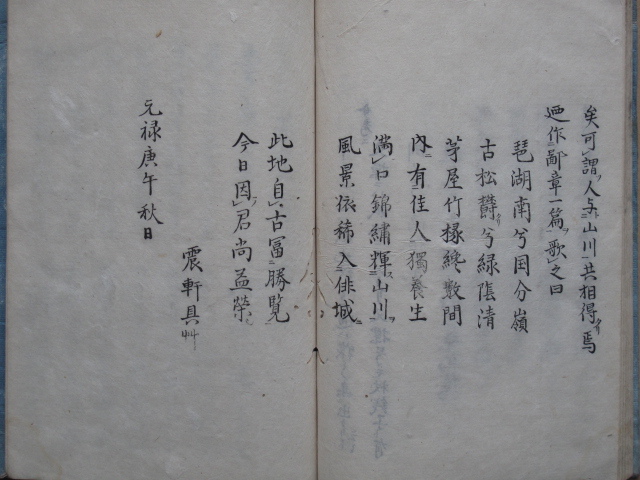 矣可謂人与山川共相得焉
廼作鄙章一篇歌之曰
琵湖南兮国分嶺
古松欝兮緑陰清
茅屋竹椽纔数間
内有佳人獨養生
満口錦繍輝山川
風景依稀入俳城
此地自古冨勝覧
今日因君尚益榮
元禄庚午秋日
震軒具艸